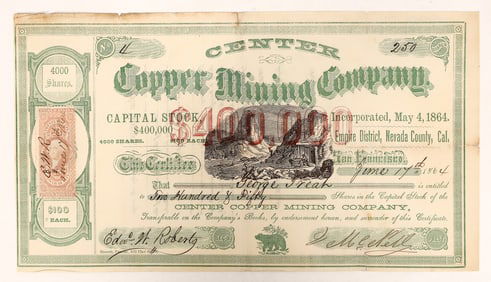 No. 4
250
CENTER
Copper Mining Company.
4000
Shares.
$100
EACH.
CAPITAL STOCK
$400,000
4000 SHARES. $100 EACH.
$400,000
Incorporated, May 4, 1864.
Empire District, Nevada County, Cal.
This Certifies
San Francisco,
June 17th 1864
That George Treat is entitled
Two Hundred & Fifty Shares in the Capital Stock of the
CENTER COPPER MINING COMPANY,
Transferable on the Company's Books, by endorsement hereon, and surrender of this Certificate.
Edw. W. Roberts